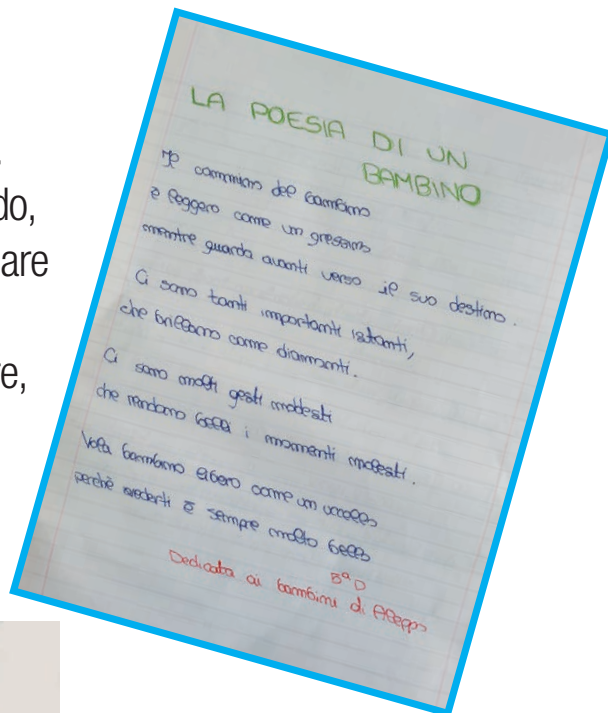 do,
are
re,
LA POESIA DI UN
BAMBINO
Il cammino del bambino
è leggero come un gressino
mentre guarda avanti verso il suo destino.
Ci sono tanti importanti istanti,
che brillano come diamanti.
Ci sono molti gesti modesti
che rendono belli i momenti molesti.
Vola bambino libero come un uccello
perchè vederti è sempre molto bello
3ª D
Dedicata ai bambini di Aleppo